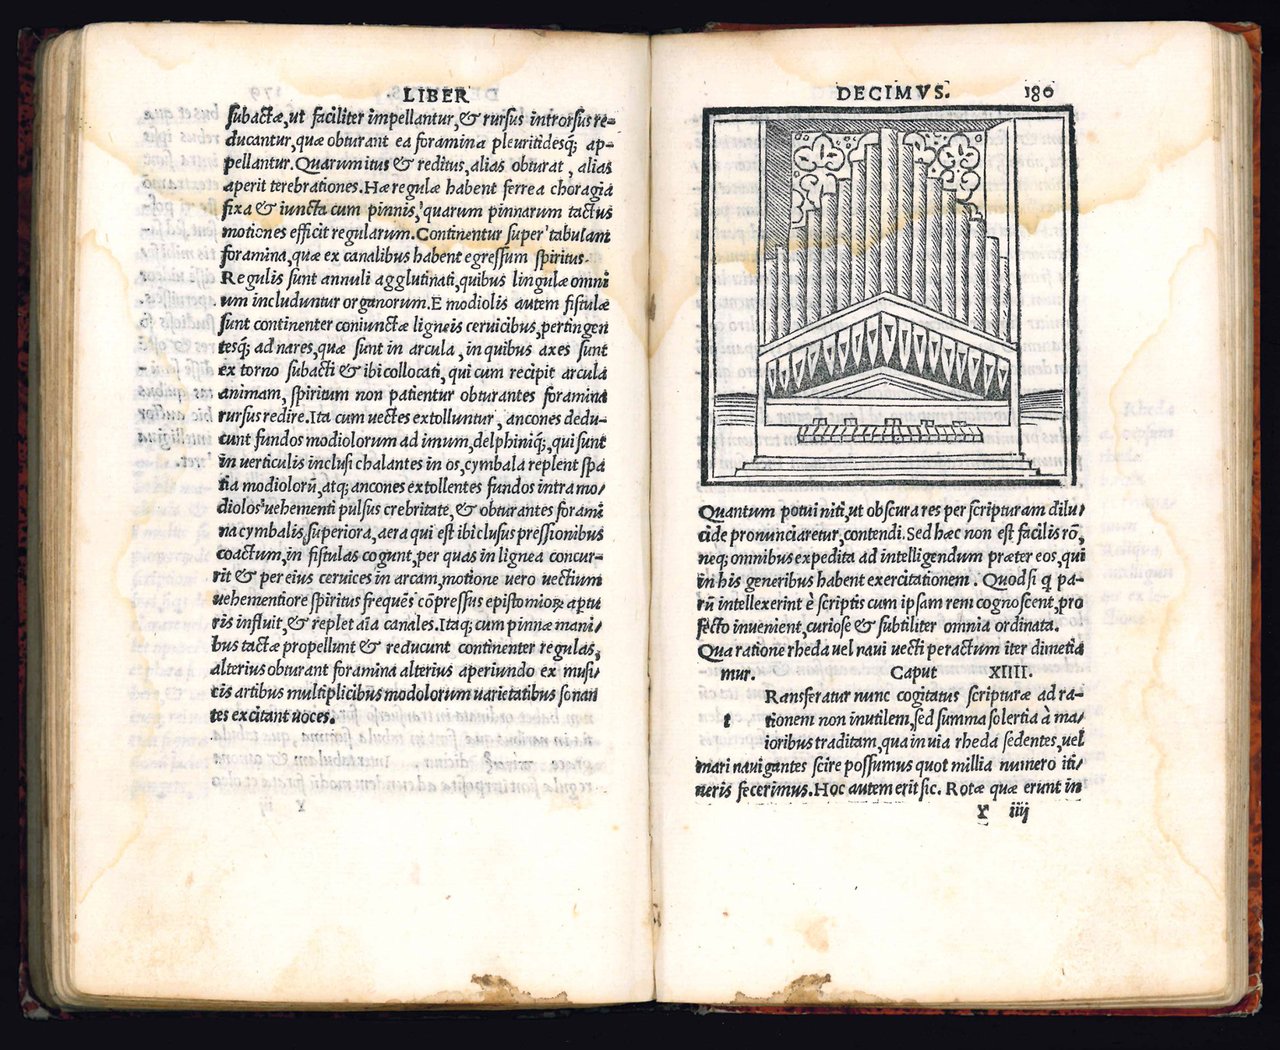 LIBER
subactæ, ut faciliter impellantur, & rursus introrsus re-
ducantur, quæ obturant ea foramina pleuritidesq; ap-
pellantur. Quarum itus & reditus, alias obturat, alias
aperit terebrationes. Hæ regulæ habent ferrea choragia
fixa & iuncta cum pinnis, quarum pinnarum tactus
motiones efficit regularum. Continentur super tabulam
foramina, quæ ex canalibus habent egressum spiritus.
Regulis sunt annuli agglutinati, quibus lingulæ omni
um includuntur organorum. E modiolis autem fistulæ
sunt continenter coniunctæ ligneis ceruicibus, pertingen
tesq; ad nares, quæ sunt in arcula, in quibus axes sunt
ex torno subacti & ibi collocati, qui cum recipit arcula
animam, spiritum non patientur obturantes foramina
rursus redire. Ita cum uectes extolluntur, ancones dedu-
cunt fundos modiolorum ad imum, delphiniq;, qui sunt
in uerticulis inclusi chalantes in os, cymbala replent spa
tia modiolorū, atq; ancones extollentes fundos intra mo/
diolos uehementi pulsus crebritate, & obturantes forami
na cymbalis superiora, aera qui est ibi clusus pressionibus
coactum, in fistulas cogunt, per quas in lignea concur-
rit & per eius ceruices in arcam, motione uero uectium
uehementiore spiritus frequēs cōpressus epistomiorꝝ aptu
ris influit, & replet aīa canales. Itaq; cum pinnæ mani/
bus tactæ propellunt & reducunt continenter regulas,
alterius obturant foramina alterius aperiundo ex musi/
cis artibus multiplicibus modolorum uarietatibus sonan
tes excitant uoces.
DECIMVS. 180
Quantum potui niti, ut obscura res per scripturam dilu/
cide pronunciaretur, contendi. Sed hæc non est facilis rō,
neq; omnibus expedita ad intelligendum præter eos, qui
in his generibus habent exercitationem. Quodsi q pa-
rū intellexerint è scriptis cum ipsam rem cognoscent, pro
fecto inuenient, curiose & subtiliter omnia ordinata.
Qua ratione rheda uel naui uecti peractum iter dimetia
mur. Caput XIIII.
Ransferatur nunc cogitatus scripturæ ad ra-
t tionem non inutilem, sed summa solertia à ma/
ioribus traditam, qua in uia rheda sedentes, uel
mari nauigantes scire possumus quot millia numero iti/
neris fecerimus. Hoc autem erit sic. Rotæ quæ erunt in
X iiij